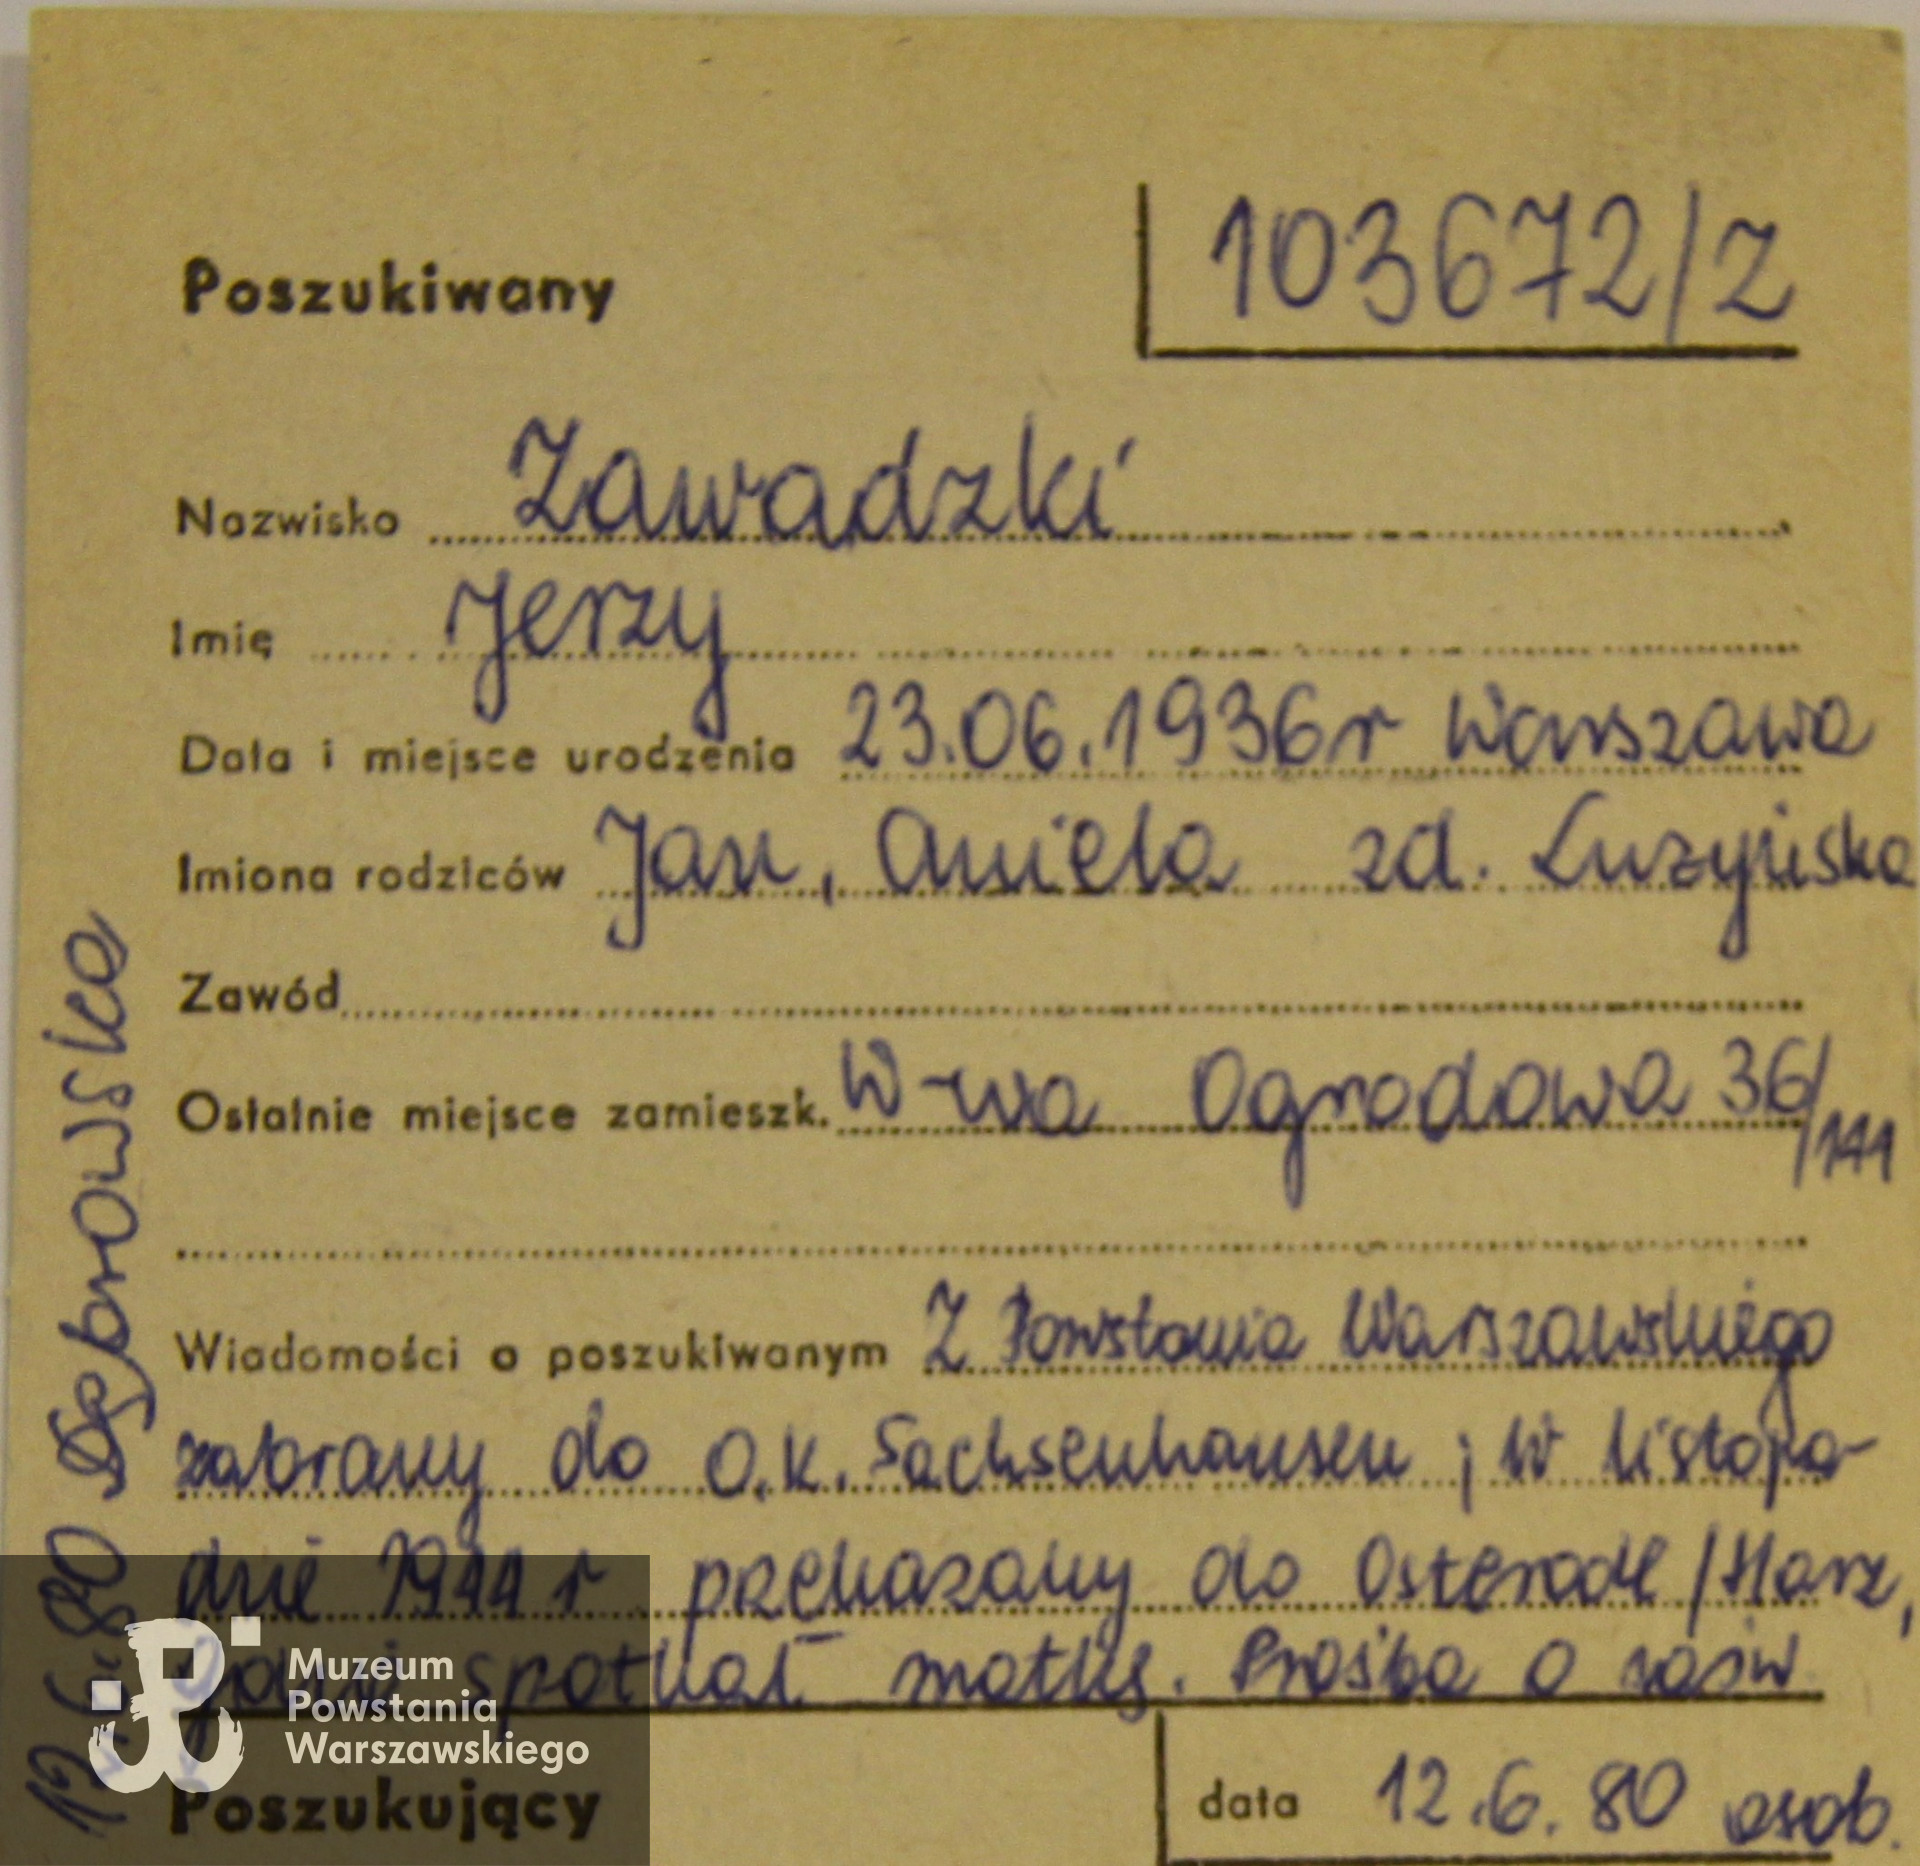 Poszukiwany
103672/Z
Nazwisko Zawadzki
Imię Jerzy
Data i miejsce urodzenia 23.06.1936r Warszawa
Imiona rodziców Jan, Aniela zd. Łuzyńska
Zawód
Ostatnie miejsce zamieszk. W-wa Ogrodowa 36/141
Wiadomości o poszukiwanym Z Powstania Warszawskiego
zabrany do O.K. Sachsenhausen; w listopa-
dzie 1944 r przekazany do Osterode/Harz,
gdzie spotkał matkę. Prośba o zaśw
Poszukujący
data 12.6.80 osob.
12.6.80 Dębrowska
Muzeum
Powstania
Warszawskiego